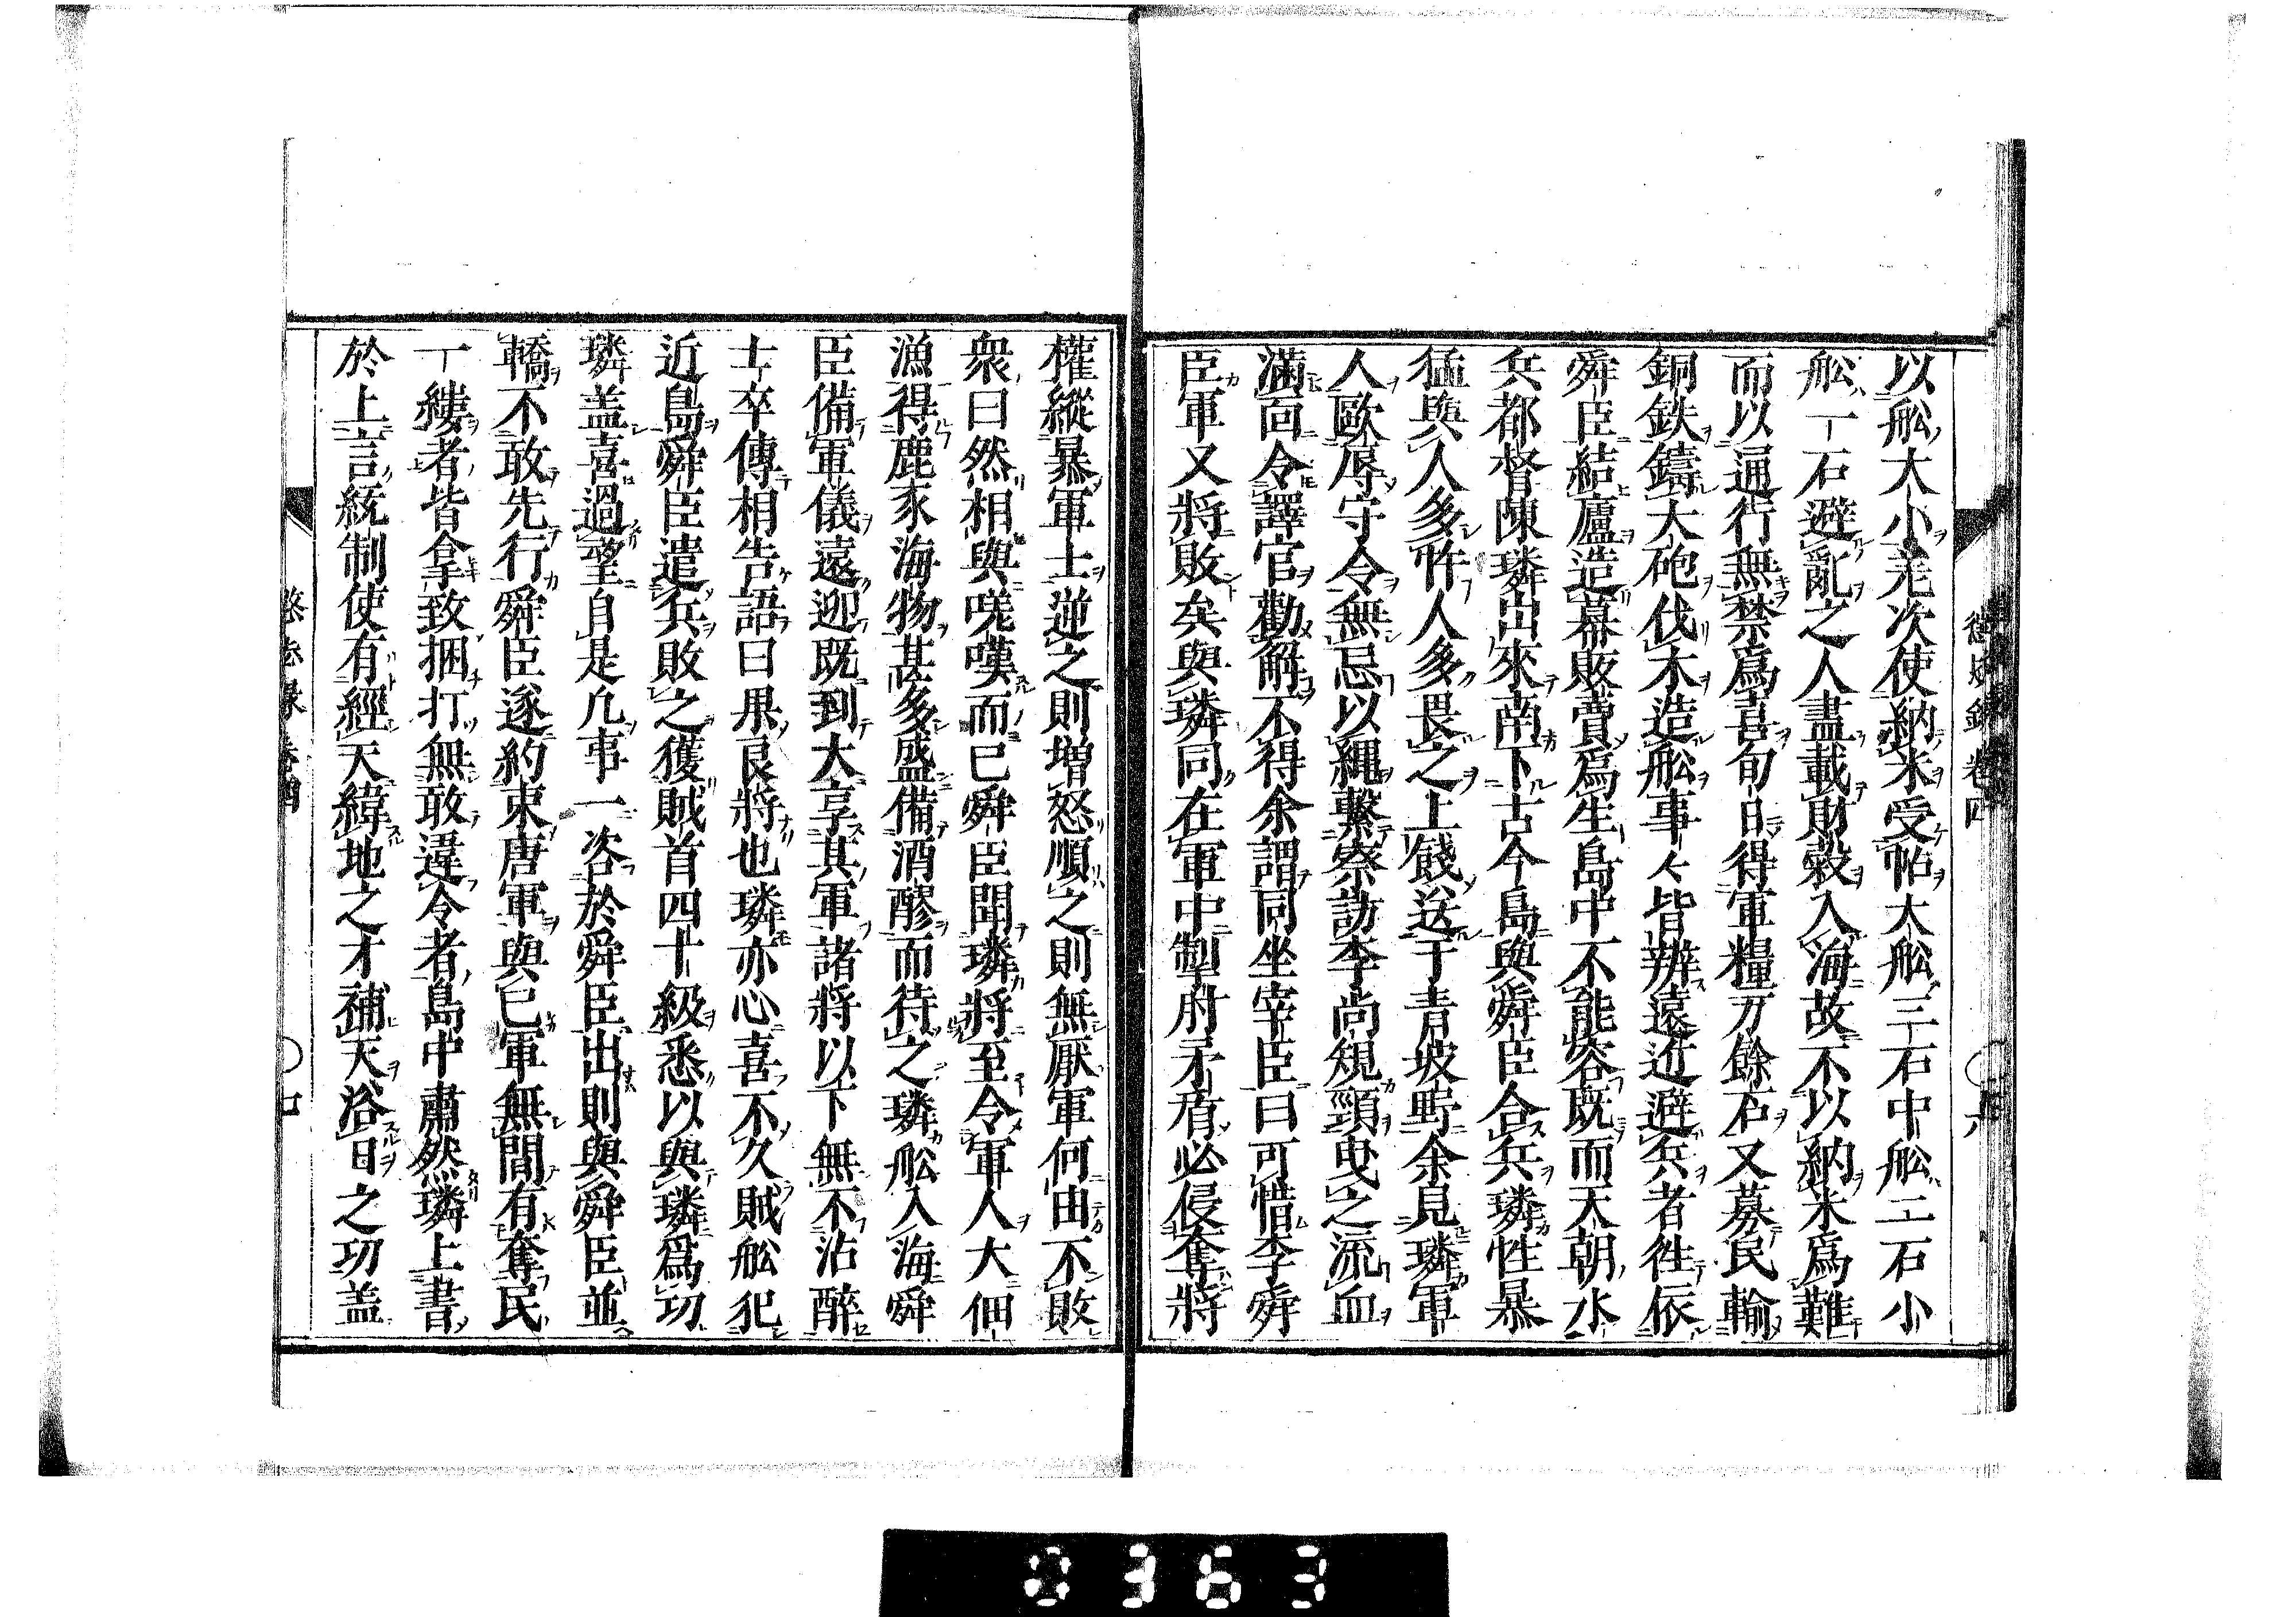 以舩大小差次使納米受帖大舩三石中舩二石小
舩一石避亂之人盡載財穀入海故不以納米爲難
而以通行無禁爲喜旬日得軍糧万餘石又募民輸
銅鉄鑄大砲伐木造舩事々皆辨遠近避兵者徃依
舜臣結廬造幕販賣爲生島中不能容既而天朝水
兵都督陳璘出來南下古今島與舜臣合兵璘性暴
猛與人多忤人多畏之上餞送于青坡野余見璘軍
人歐辱守令無忌以縄繋察訪李尚規頸曳之流血
滿面令譯官勸解不得余謂同坐宰臣曰可惜李舜
臣軍又將敗矣與璘同在軍中掣肘矛盾必侵奪將
權縱暴軍士逆之則増怒順之則無厭軍何由不敗
衆曰然相與嗟嘆而已舜臣聞璘將至令軍人大佃
漁得鹿豕海物甚多盛備酒醪而待之璘舩入海舜
臣備軍儀遠迎既到大享其軍諸將以下無不沾醉
士卒傳相告語曰果良將也璘亦心喜不久賊舩犯
近島舜臣遣兵敗之獲賊首四十級悉以與璘爲功
璘盖喜過望自是凢事一咨於舜臣出則與舜臣並
轎不敢先行舜臣遂約束唐軍與已軍無間有奪民
一縷者皆拿致捆打無敢違令者島中肅然璘上書
於上言統制使有經天緯地之才補天浴日之功盖
懲毖録卷四
六
0363